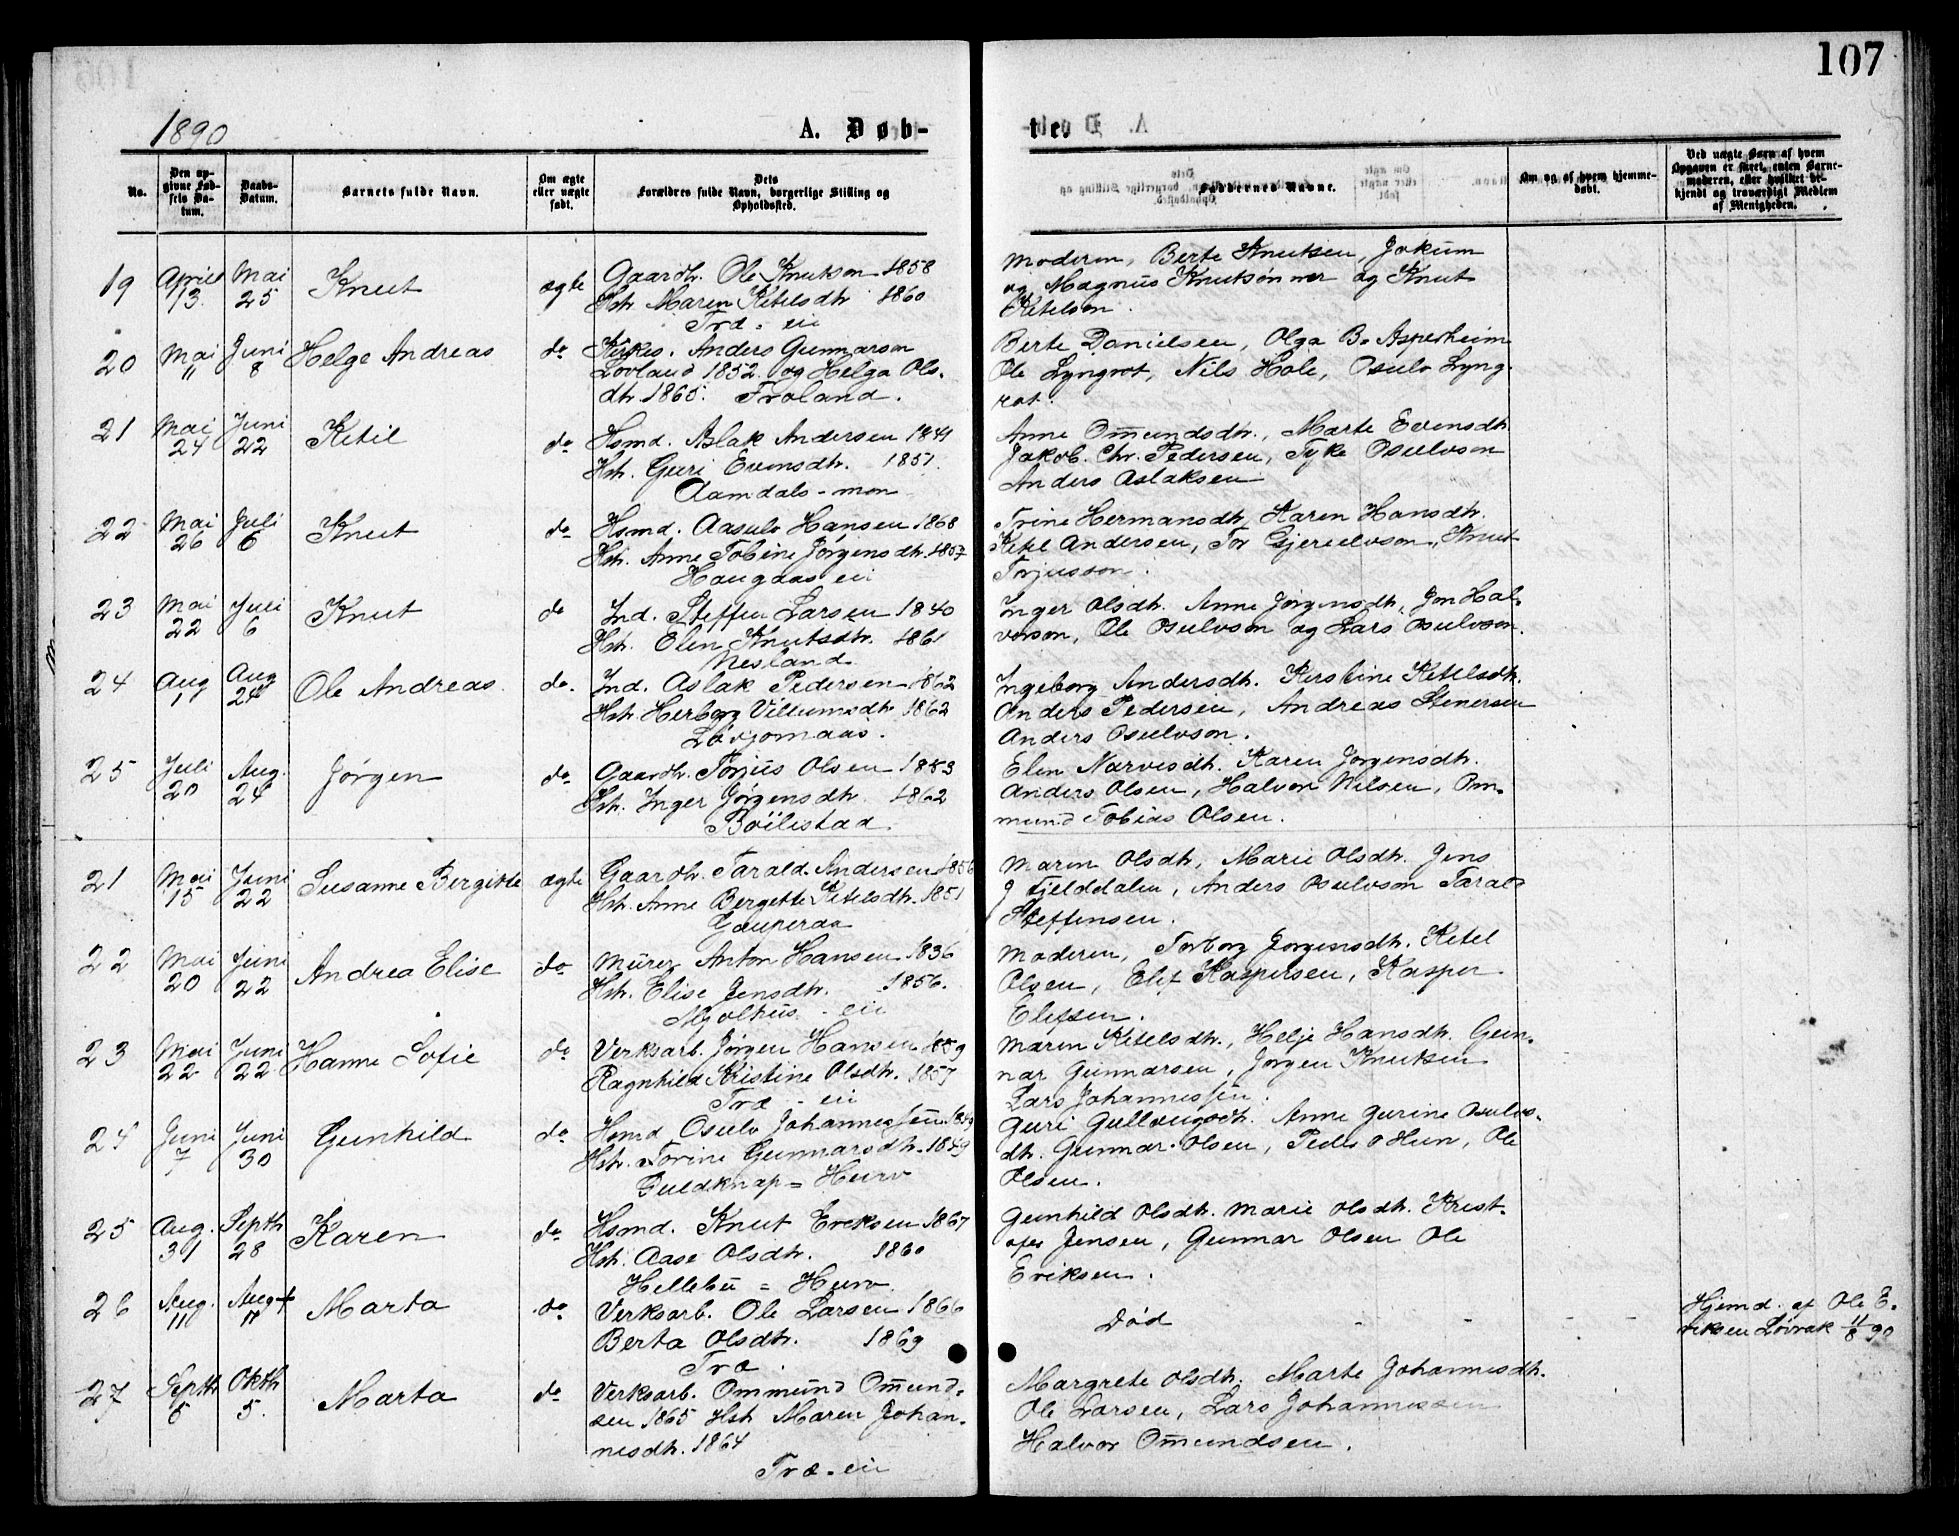 107
1890
A. Døb-
tes
No.
Den op-
givne Fød-
sels Da-
tum.
Daabs-
Datum.
Barnets fulde Navn.
Om ægte
eller uægte
født.
Dets
Forældres fulde Navn, borgerlige Stilling og
Opholdssted.
Faddernes Navne.
Om og af hvem hjemme-
døbt.
Ved uægte Børn af hvem
Opgaven er skeet, enten Barne-
moderen, eller hvilket be-
kjendt og troværdigt Medlem
af Menigheden.
19 April 13. Mai 25 Knut ægte
Gaardb. Ole Knutson 1858
Hst. Maren Ketelsdtr 1860
Træ - eii
Moderen, Berte Knutsen, Jokum
og Magnus Knutsønner og Knut
Ketelson.
20 Mai 11 Juni 8 Helge Andreas do
Kirkes. Anders Gunnarson
Lovland 1852. og Helga Ols-
dtr 1865. Froland.
Berte Danielsen, Olga B. Asperheim
Ole Lyngrot, Nils Hole, Osulv Lyng-
rot.
21 Mai 24 Juni 22 Ketil do
Hsmd. Aslak Andersen 1841
Hst. Guri Evensdtr. 1851.
Aamdals-moen
Anne Omundsdtr., Marte Evensdtr
Jakob Chr. Pedersen, Tyke Osulvson
Anders Aslaksen
22 Mai 26 Juli 6 Knut do
Hsmd. Aasulv Hansen 1868
Hst. Anne Tobine Jørgensdtr. 1857
Haugaas eii
Trine Hermansdtr, Karen Hansdtr.
Ketel Andersen, Tor Gjerulvson, Knut
Torjusson.
23 Mai 22 Juli 6 Knut do
Ind. Steffen Larsen 1840
Hst. Elen Knutsdtr. 1861
Nesland
Inger Olsdtr. Anne Jørgensdtr, Jon Hal-
vorson, Ole Osulvson og Lars Osulvson.
24 Aug 1 Aug 24 Ole Andreas do.
Ind. Aslak Pedersen 1862
Hst. Herborg Villumsdtr 1862
Løvjomaas.
Ingeborg Andersdtr. Kirstine Ketelsdtr.
Anders Pedersen, Andreas Stenersen
Anders Osulvson.
25 Juli 20 Aug. 24 Jørgen do
Gaardb. Torjus Olsen 1853
Hst. Inger Jørgensdtr. 1862
Bøilestad
Elen Narvesdtr. Karen Jørgensdtr.
Anders Olsen, Halvor Nilsen, Om-
mund Tobias Olsen.
21 Mai 15 Juni 22 Susanne Bergitte ægte
Gaardb. Tarald Andersen 1856
Hst. Anne Bergette Ketelsdtr. 1851
Gauperaa
Maren Olsdtr, Marie Olsdtr. Jens
J Fjelddalen, Anders Osulvson Tarald
Steffensen.
22 Mai 20 Juni 22 Andrea Elise do
Murer Anton Hansen 1836
Hst. Elise Jensdtr. 1856.
Mjølhus - eii
Moderen, Torborg Jørgensdtr. Ketel
Olsen, Elef Kaspersen, Kasper
Elefsen.
23 Mai 22 Juni 22 Hanne Sofie do
Verksarb. Jørgen Hansen 1859
Ragnhild Kristine Olsdtr. 1857
Træ - eii
Maren Ketelsdtr., Helje Hansdtr. Gun-
nar Gunnarsen, Jørgen Knutsen
Lars Johannessen.
24 Juni 7 Juni 30 Gunhild do
Hsmd Osulv Johannessen
Hst. Torine Gunnarsdtr. 1849
Guldknap = Hurv
Guri Gullaugsdtr. Anne Gurine Osulvs-
dtr. Gunnar Olsen, Peder O Hurv, Ole
Olsen.
25 Aug. 31 Septbr 28 Karen do
Hsmd. Knut Eriksen 1867
Hst. Aase Olsdtr. 1860
Hellebu = Hurv
Gunhild Olsdtr. Marie Olsdtr. Krist-
ofer Jensen, Gunnar Olsen Ole
Eriksen.
26 Aug. 11 Aug + 11 Marta do
Verksarb. Ole Larsen 1866
Berta Olsdtr. 1869
Træ.
Død
Hjemd. af Ole E-
riksen Løvrak 11/8 90
27 Septbr 5 Oktbr 5. Marta do
Verksarb. Ommund Omund-
sen 1865 Hst Maren Johan-
nesdtr. 1864
Træ-eii
Margrete Olsdtr. Marte Johannesdtr.
Ole Larsen, Lars Johannessen
Halvor Omundsen.